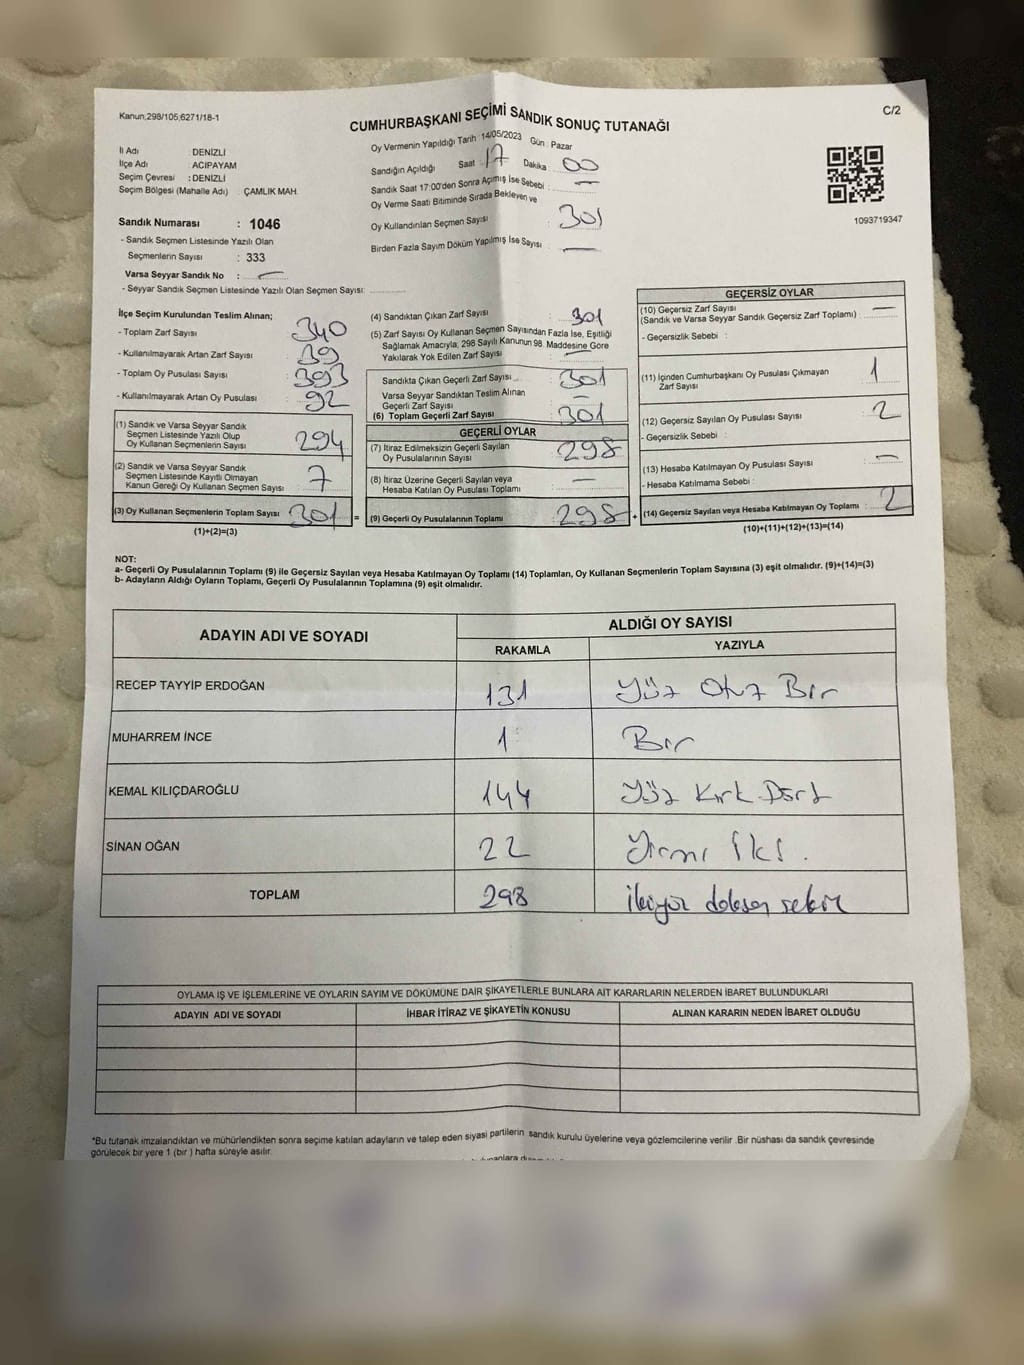 Kanun;298/105;6271/18-1
C/2
CUMHURBAŞKANI SEÇİMİ SANDIK SONUÇ TUTANAĞI
İl Adı : DENİZLİ
İlçe Adı : ACIPAYAM
Seçim Çevresi : DENİZLİ
Seçim Bölgesi (Mahalle Adı) ÇAMLIK MAH.
Sandık Numarası : 1046
- Sandık Seçmen Listesinde Yazılı Olan
Seçmenlerin Sayısı : 333
Varsa Seyyar Sandık No : —
- Seyyar Sandık Seçmen Listesinde Yazılı Olan Seçmen Sayısı:
Oy Vermenin Yapıldığı Tarih : 14/05/2023 Gün : Pazar
Sandığın Açıldığı Saat : 17 Dakika : 00
Sandık Saat 17:00'den Sonra Açılmış İse Sebebi : —
Oy Verme Saati Bitiminde Sırada Bekleyen ve
Oy Kullandırılan Seçmen Sayısı : 301
Birden Fazla Sayım Döküm Yapılmış İse Sayısı : —
1093719347
İlçe Seçim Kurulundan Teslim Alınan;
- Toplam Zarf Sayısı : 340
- Kullanılmayarak Artan Zarf Sayısı : 39
- Toplam Oy Pusulası Sayısı : 393
- Kullanılmayarak Artan Oy Pusulası : 92
(1) Sandık ve Varsa Seyyar Sandık
Seçmen Listesinde Yazılı Olup
Oy Kullanan Seçmenlerin Sayısı : 294
(2) Sandık ve Varsa Seyyar Sandık
Seçmen Listesinde Kayıtlı Olmayan
Kanun Gereği Oy Kullanan Seçmen Sayısı : 7
(3) Oy Kullanan Seçmenlerin Toplam Sayısı : 301 =
(1)+(2)=(3)
(4) Sandıktan Çıkan Zarf Sayısı : 301
(5) Zarf Sayısı Oy Kullanan Seçmen Sayısından Fazla İse, Eşitliği
Sağlamak Amacıyla; 298 Sayılı Kanunun 98. Maddesine Göre
Yakılarak Yok Edilen Zarf Sayısı : —
Sandıkta Çıkan Geçerli Zarf Sayısı : 301
Varsa Seyyar Sandıktan Teslim Alınan
Geçerli Zarf Sayısı :
(6) Toplam Geçerli Zarf Sayısı : 301
GEÇERLİ OYLAR
(7) İtiraz Edilmeksizin Geçerli Sayılan
Oy Pusulalarının Sayısı : 298
(8) İtiraz Üzerine Geçerli Sayılan veya
Hesaba Katılan Oy Pusulası Toplamı : —
(9) Geçerli Oy Pusulalarının Toplamı : 298 +
GEÇERSİZ OYLAR
(10) Geçersiz Zarf Sayısı
(Sandık ve Varsa Seyyar Sandık Geçersiz Zarf Toplamı) : —
- Geçersizlik Sebebi :
(11) İçinden Cumhurbaşkanı Oy Pusulası Çıkmayan
Zarf Sayısı : 1
(12) Geçersiz Sayılan Oy Pusulası Sayısı : 2
- Geçersizlik Sebebi :
(13) Hesaba Katılmayan Oy Pusulası Sayısı : —
- Hesaba Katılmama Sebebi :
(14) Geçersiz Sayılan veya Hesaba Katılmayan Oy Toplamı : 2
(10)+(11)+(12)+(13)=(14)
NOT:
a- Geçerli Oy Pusulalarının Toplamı (9) ile Geçersiz Sayılan veya Hesaba Katılmayan Oy Toplamı (14) Toplamları, Oy Kullanan Seçmenlerin Toplam Sayısına (3) eşit olmalıdır. (9)+(14)=(3)
b- Adayların Aldığı Oyların Toplamı, Geçerli Oy Pusulalarının Toplamına (9) eşit olmalıdır.
ADAYIN ADI VE SOYADI
ALDIĞI OY SAYISI
RAKAMLA YAZIYLA
RECEP TAYYİP ERDOĞAN 131 Yüz Otuz Bir
MUHARREM İNCE 1 Bir
KEMAL KILIÇDAROĞLU 144 Yüz Kırk Dört
SİNAN OĞAN 22 Yirmi İki.
TOPLAM 298 ikiyüz doksan sekiz
OYLAMA İŞ VE İŞLEMLERİNE VE OYLARIN SAYIM VE DÖKÜMÜNE DAİR ŞİKAYETLERLE BUNLARA AİT KARARLARIN NELERDEN İBARET BULUNDUKLARI
ADAYIN ADI VE SOYADI İHBAR İTİRAZ VE ŞİKAYETİN KONUSU ALINAN KARARIN NEDEN İBARET OLDUĞU
*Bu tutanak imzalandıktan ve mühürlendikten sonra seçime katılan adayların ve talep eden siyasi partilerin sandık kurulu üyelerine veya gözlemcilerine verilir .Bir nüshası da sandık çevresinde
görülecek bir yere 1 (bir ) hafta süreyle asılır.